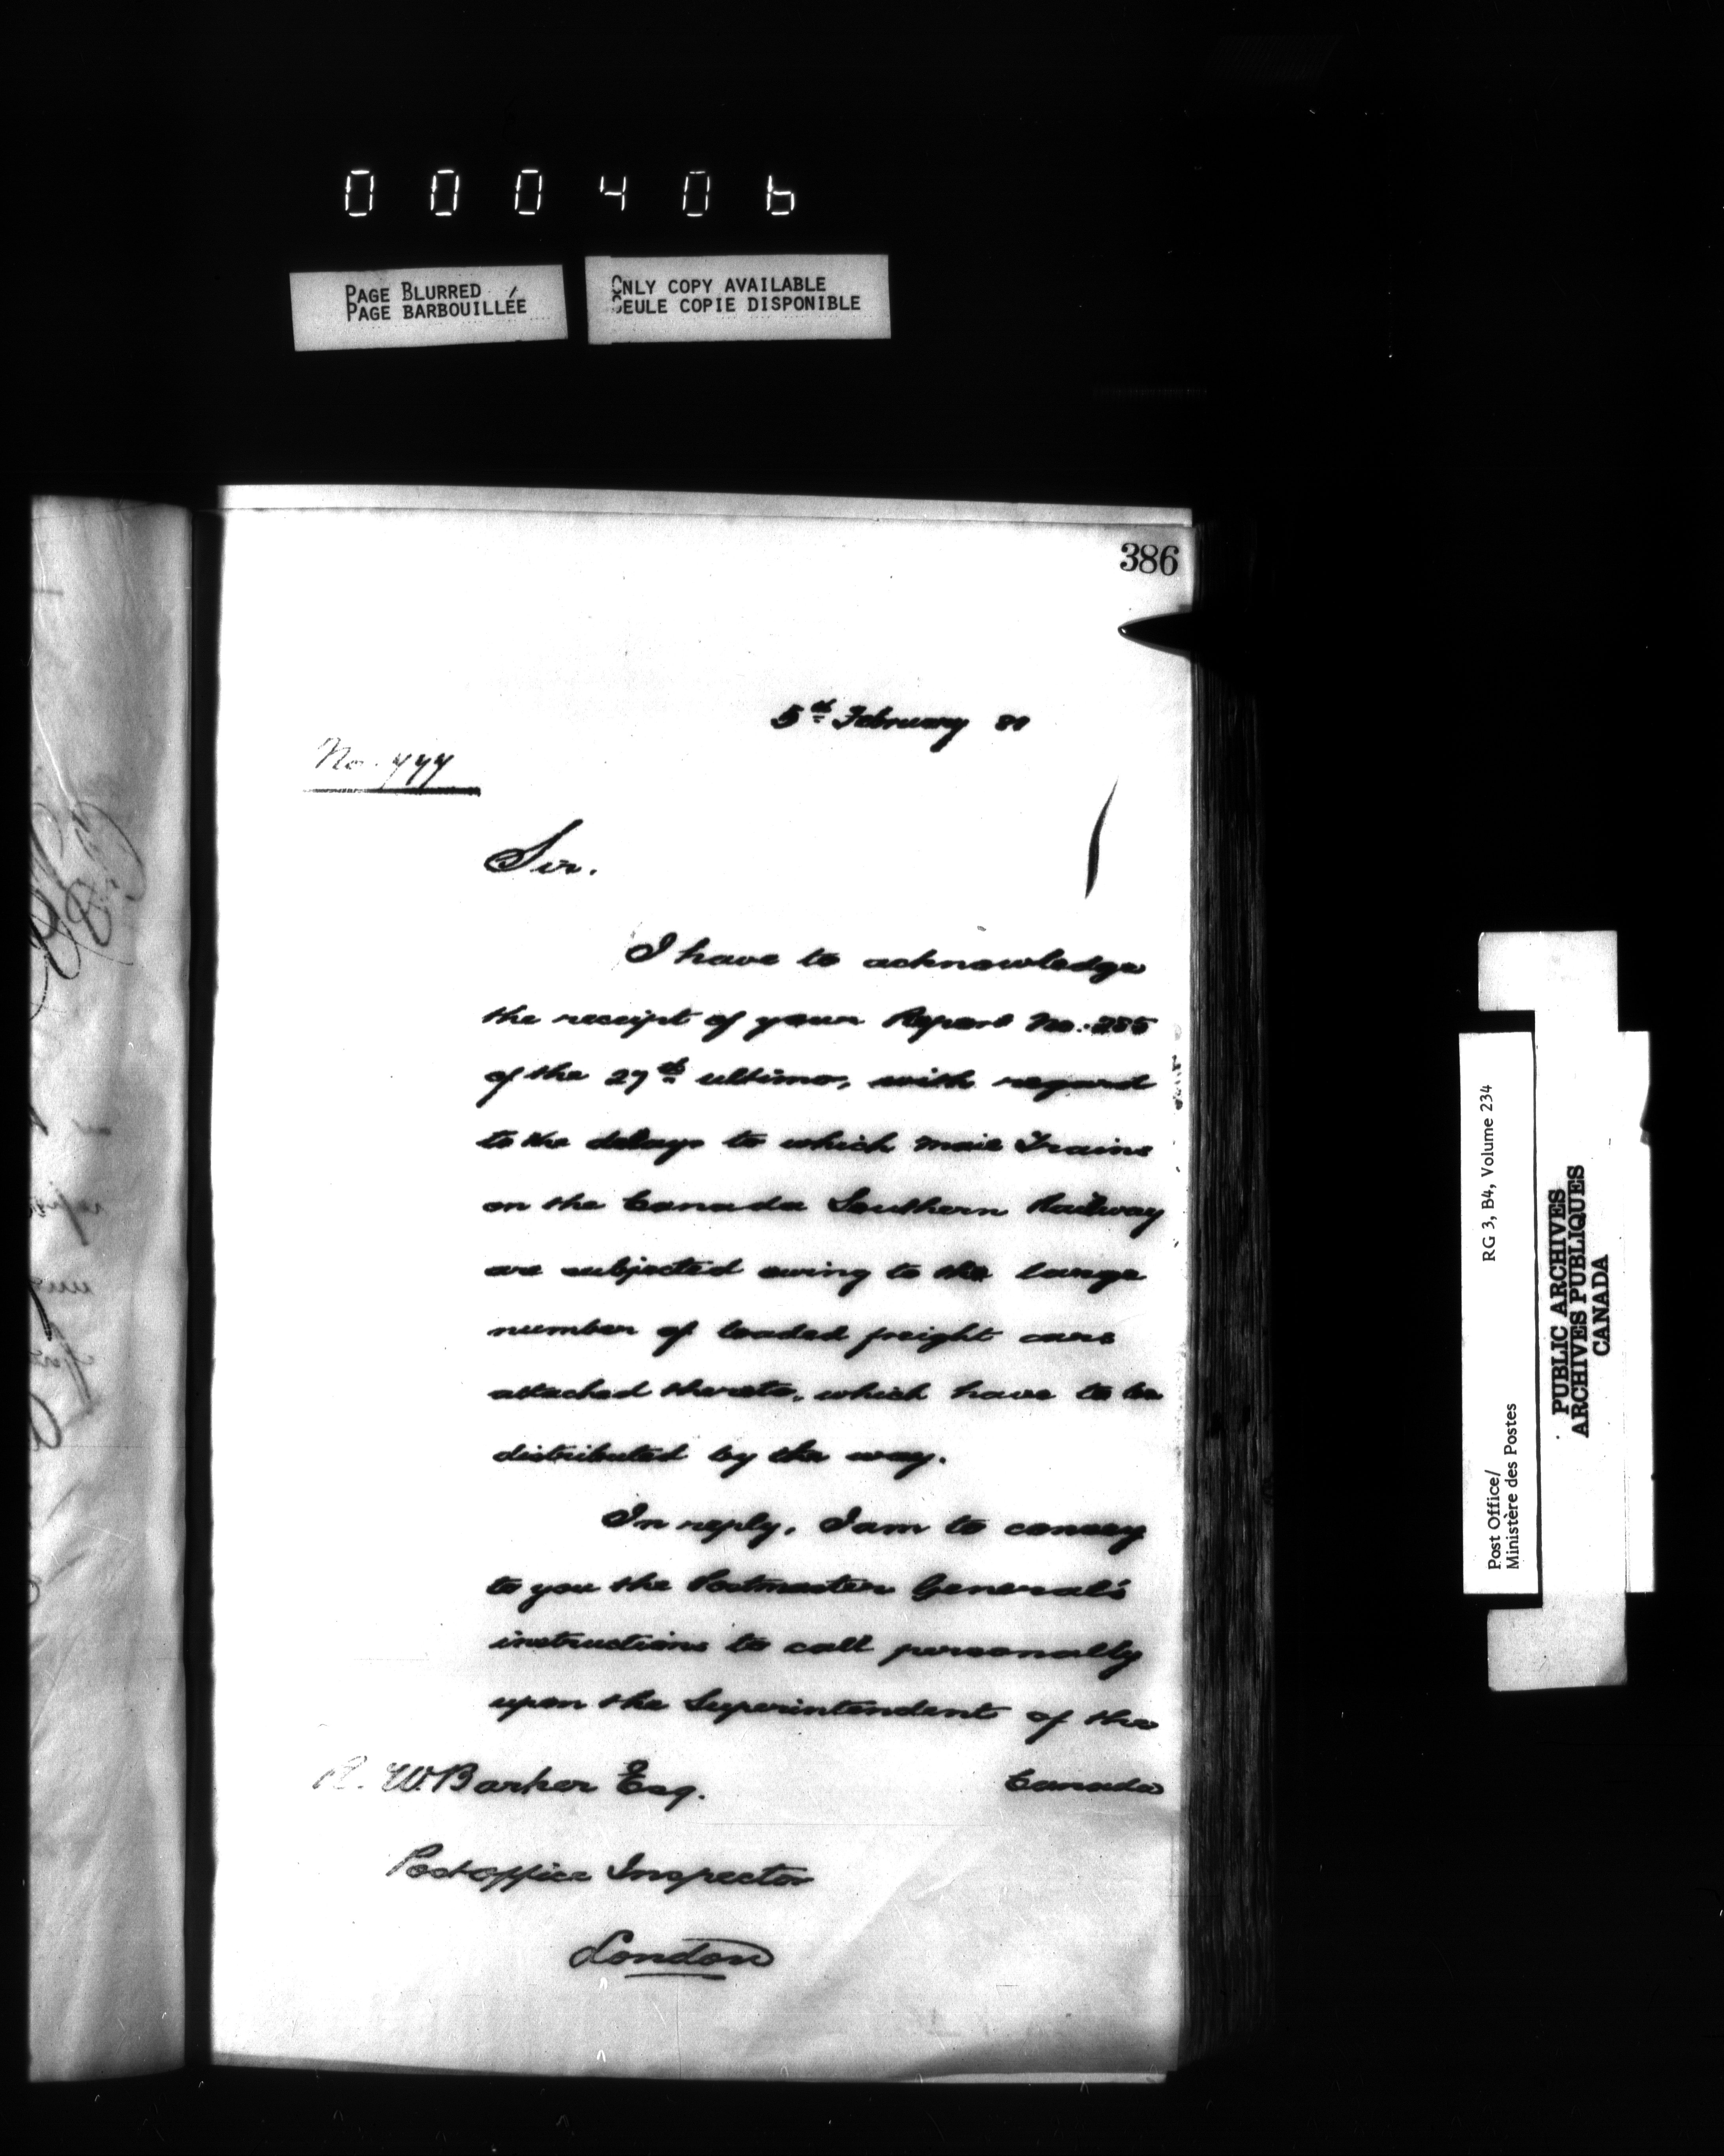 000406
PAGE BLURRED
PAGE BARBOUILLÉE
ONLY COPY AVAILABLE
SEULE COPIE DISPONIBLE
386
5th February
No. 777
Sir.
I have to acknowledge
the receipt of your Report No. 255
of the 27th ultimo, with regard
to the delays to which Mail Trains
on the Canada Southern Railway
are subjected owing to the large
number of loaded freight cars
attached thereto, which have to be
distributed by the way.
In reply, I am to convey
to you the Postmaster General's
instructions to call personally
upon the Superintendent of the
Canada
R. W Barker Esq.
Post office Inspector
London
Post Office/
Ministère des Postes
RG 3, B4, Volume 234
PUBLIC ARCHIVES
ARCHIVES PUBLIQUES
CANADA